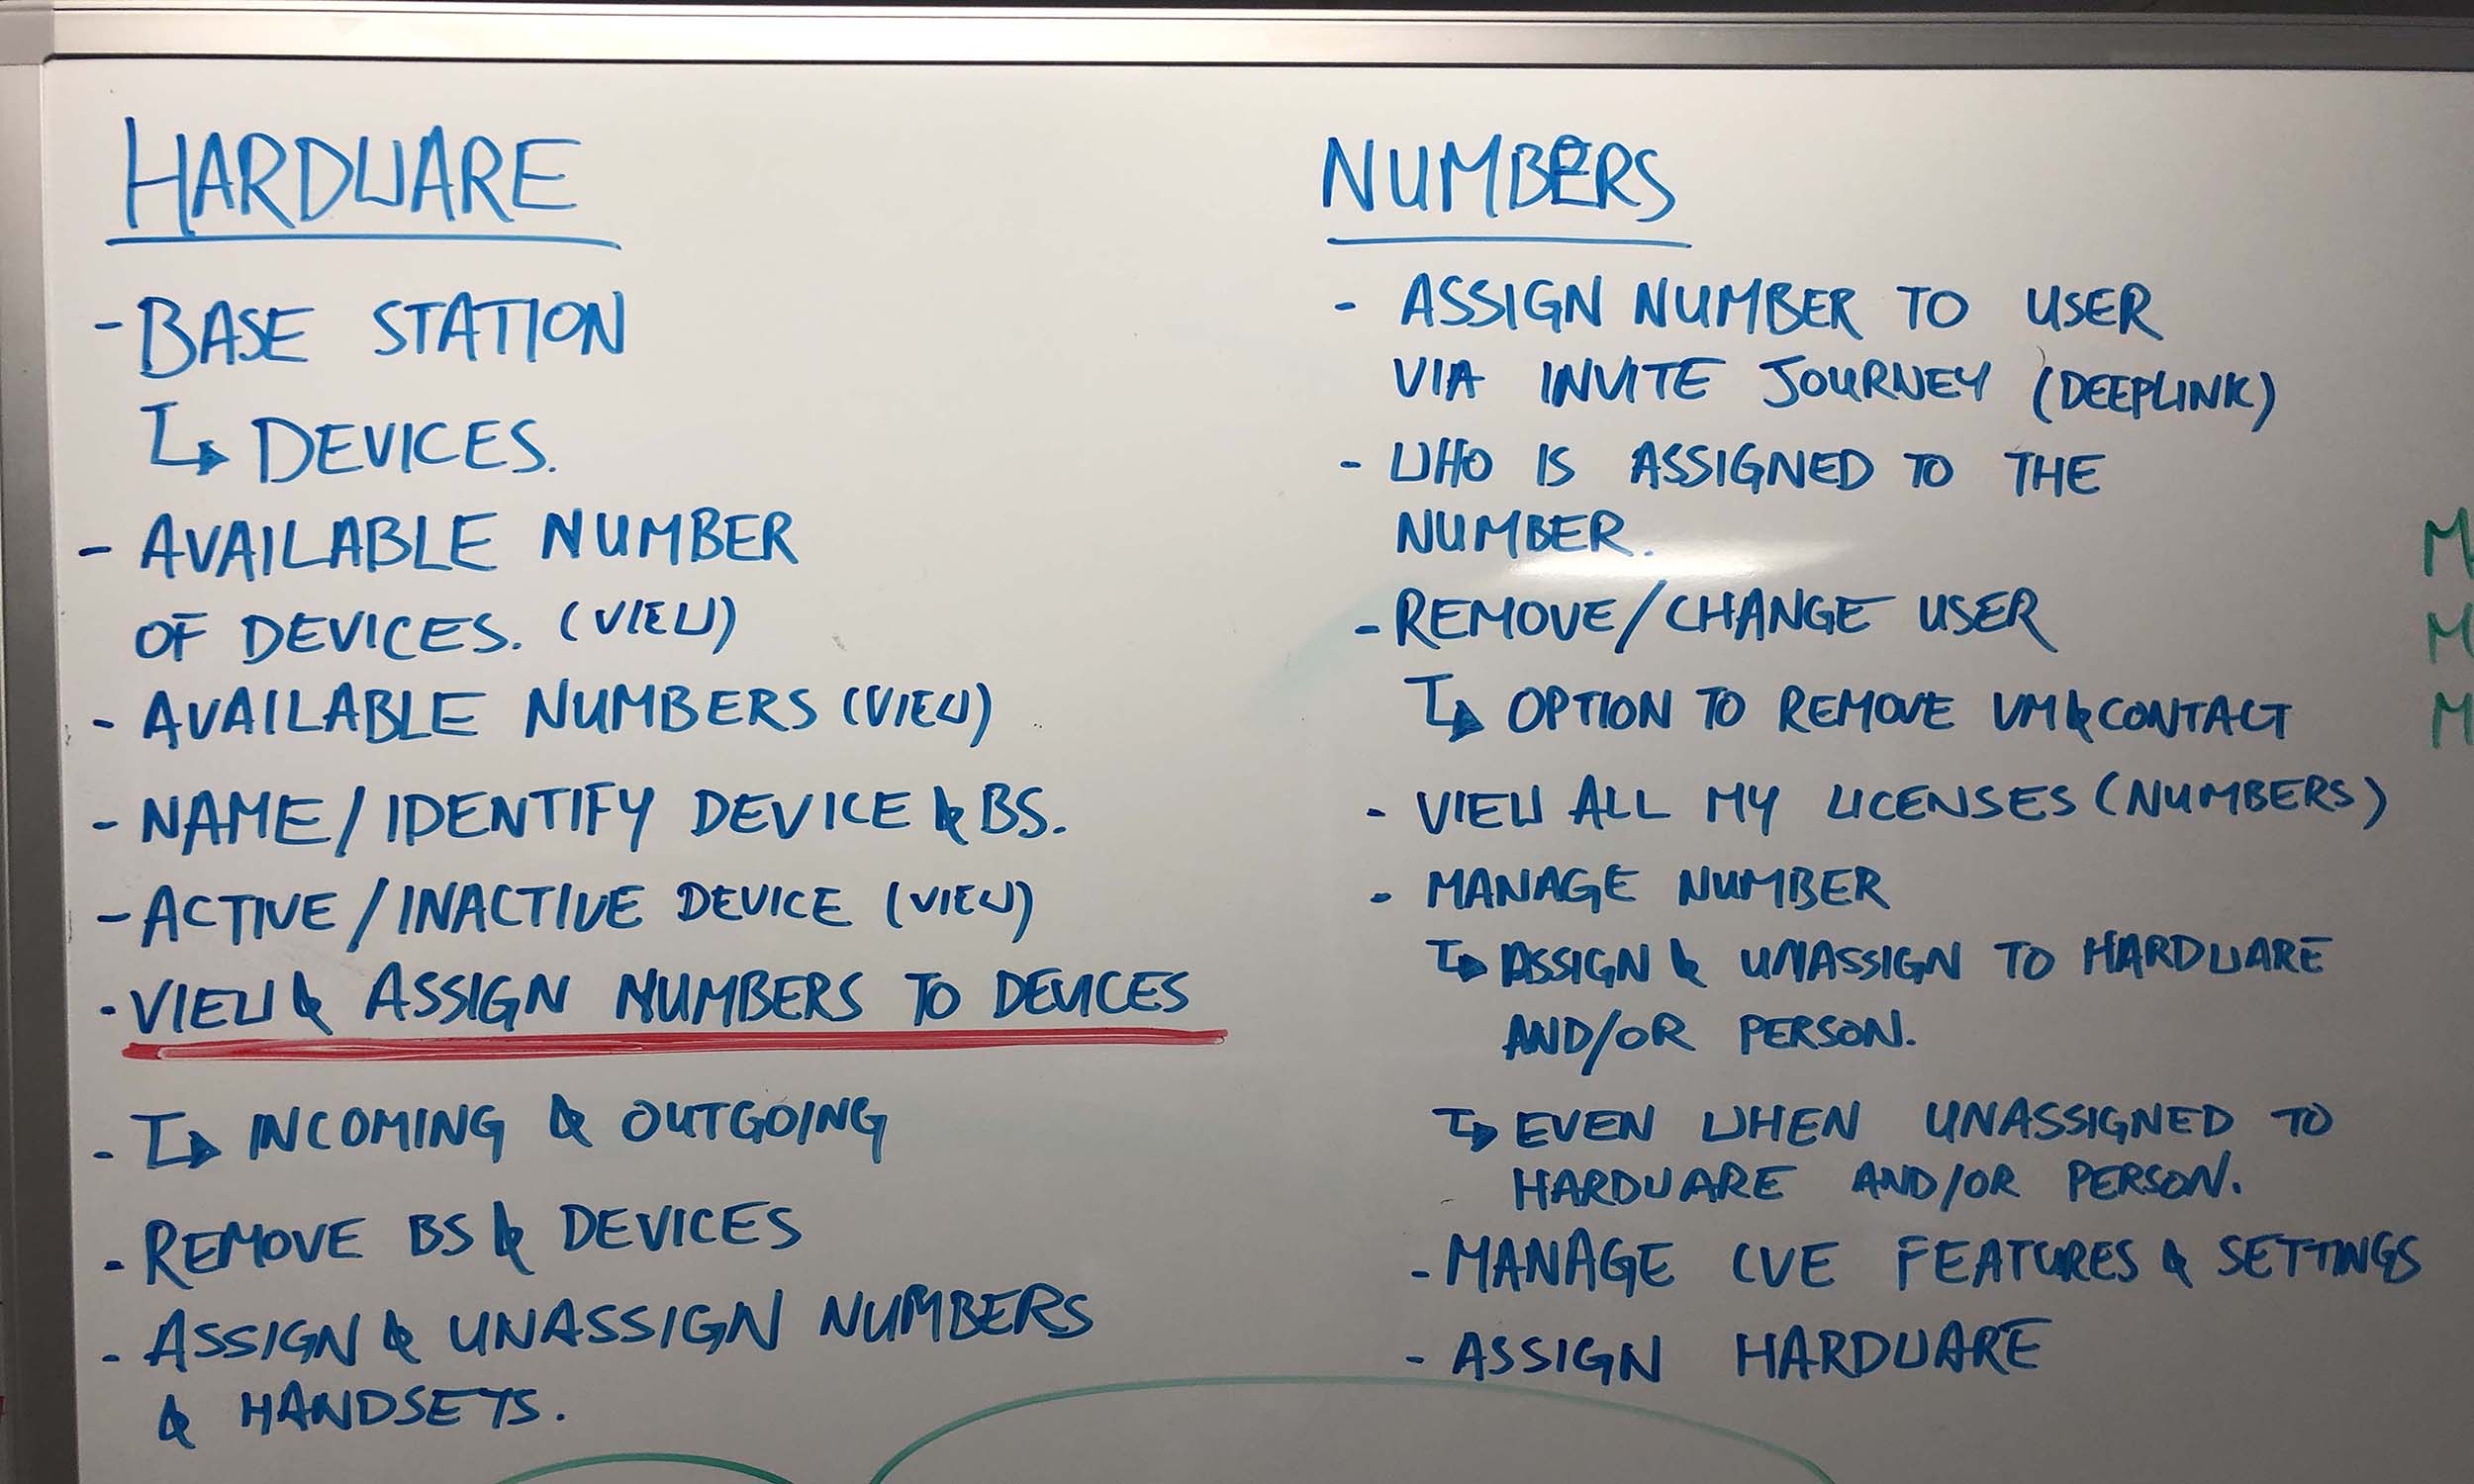 HARDWARE
- BASE STATION
↳ DEVICES.
- AVAILABLE NUMBER
OF DEVICES. (VIEW)
- AVAILABLE NUMBERS (VIEW)
- NAME/IDENTIFY DEVICE & BS.
- ACTIVE/INACTIVE DEVICE (VIEW)
- VIEW & ASSIGN NUMBERS TO DEVICES
- ↳ INCOMING & OUTGOING
- REMOVE BS & DEVICES
- ASSIGN & UNASSIGN NUMBERS
& HANDSETS.
NUMBERS
- ASSIGN NUMBER TO USER
VIA INVITE JOURNEY (DEEPLINK)
- WHO IS ASSIGNED TO THE
NUMBER.
- REMOVE/CHANGE USER
↳ OPTION TO REMOVE VM & CONTACT
- VIEW ALL MY LICENSES (NUMBERS)
- MANAGE NUMBER
↳ ASSIGN & UNASSIGN TO HARDWARE
AND/OR PERSON.
↳ EVEN WHEN UNASSIGNED TO
HARDWARE AND/OR PERSON.
- MANAGE CVE FEATURES & SETTINGS
- ASSIGN HARDWARE
M
M
M